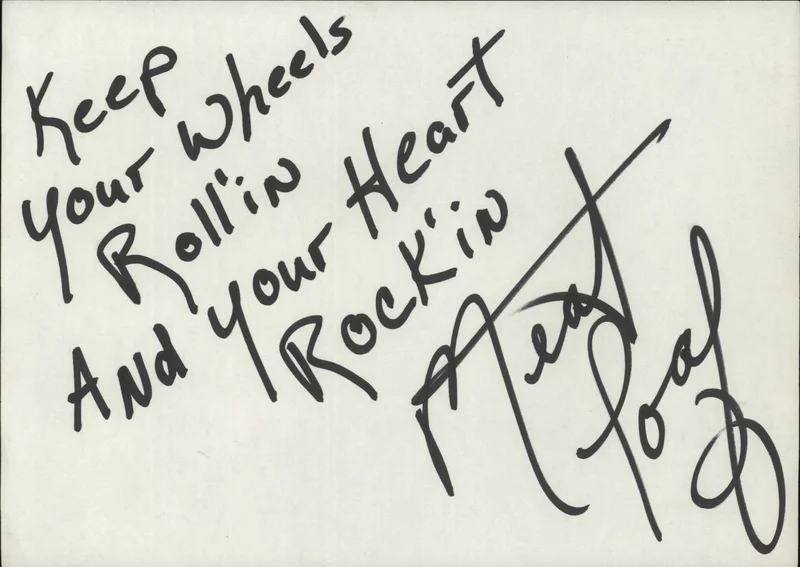 Keep
Your Wheels
Roll'in
And Your Heart
Rock'in
Meat
Loaf